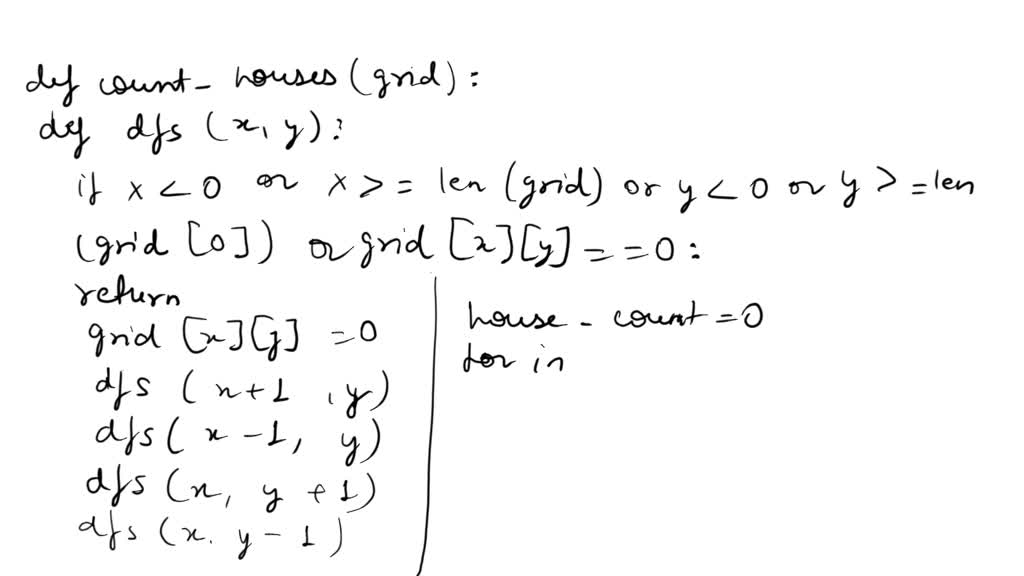 def count_houses(grid):
def dfs (x, y):
if x < 0 or x >= len (grid) or y < 0 or y >= len
(grid [0]) or grid [x][y] == 0:
return
grid [x][y] = 0
dfs (x+1, y)
dfs (x-1, y)
dfs (x, y+1)
dfs (x. y-1)
house_count = 0
for in